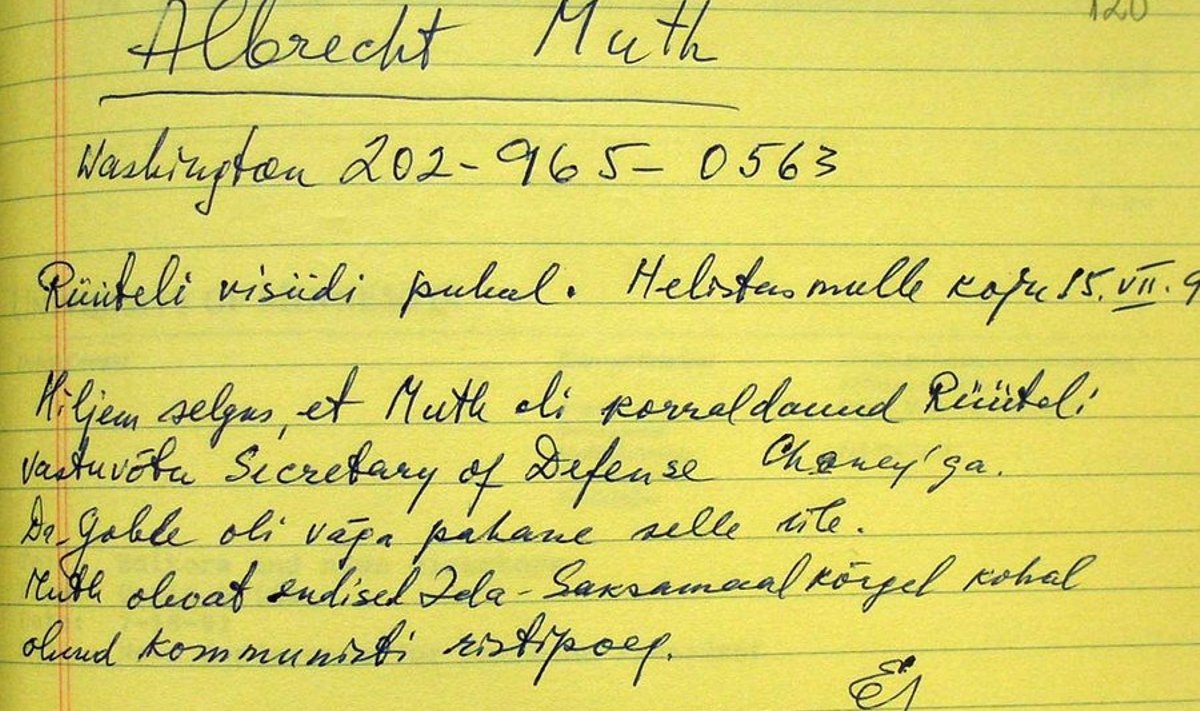 120
Albrecht Muth
Washington 202-965-0563
Rüüteli visiidi puhul. Helistas mulle koju 15. VII. 9
Hiljem selgus, et Muth oli korraldanud Rüüteli
vastuvõtu Secretary of Defense Cheney'ga.
Dr. Goble oli väga pahane selle üle.
Muth olevat endised Ida-Saksamaal kõrgel kohal
olnud kommunisti ristipoeg.